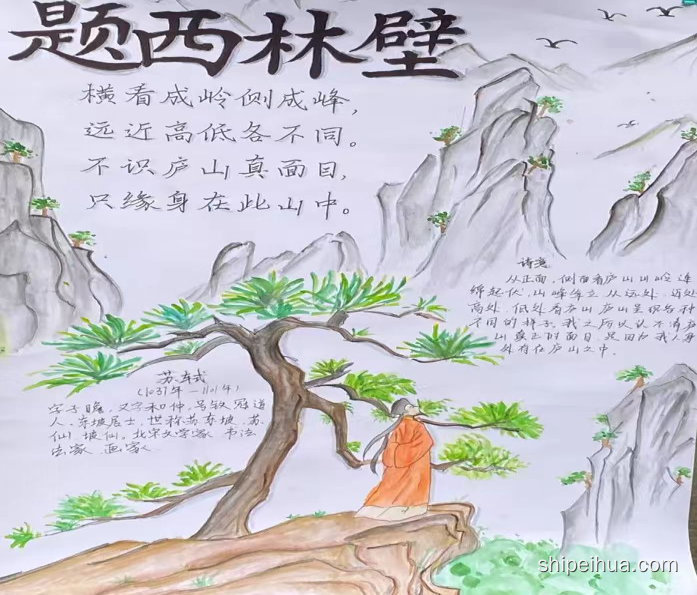 题西林壁
横看成岭侧成峰，
远近高低各不同。
不识庐山真面目，
只缘身在此山中。
诗意
从正面、侧面看庐山山岭连
绵起伏，山峰耸立，从远处、近处
高处、低处看庐山，庐山呈现各种
不同的样子。我之所以认不清庐
山真正的面目，是因为我人身
处在庐山之中。
苏轼
（1037年—1101年）
字子瞻，又字和仲，号铁冠道
人、东坡居士，世称苏东坡、苏
仙、坡仙，北宋文学家、书法
家、画家
shipeihua.com